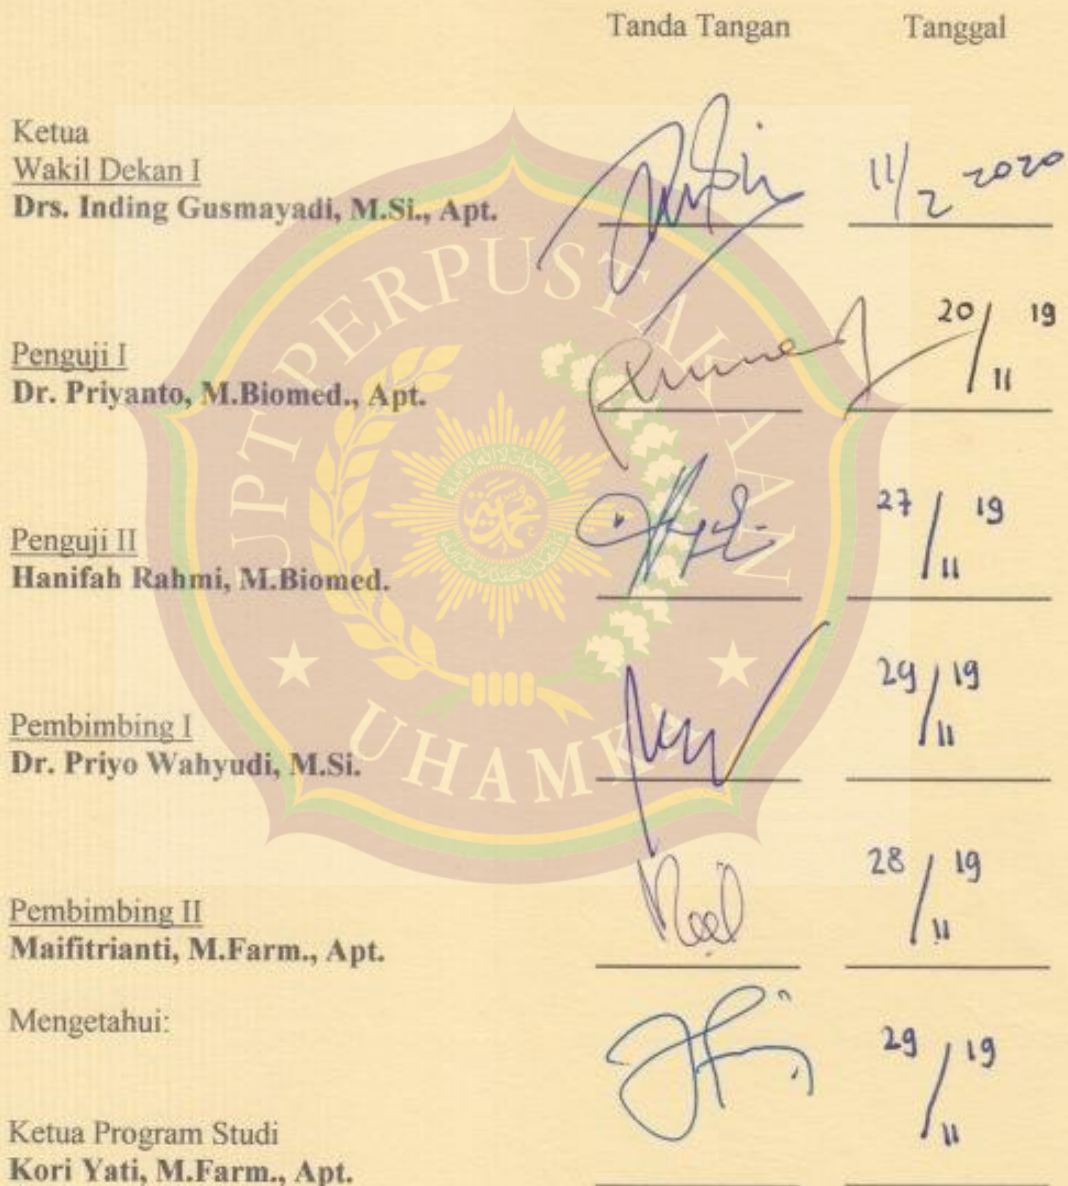 Tanda Tangan Tanggal
Ketua
Wakil Dekan I
Drs. Inding Gusmayadi, M.Si., Apt. 11/2 2020
Penguji I
Dr. Priyanto, M.Biomed., Apt. 20/11 19
Penguji II
Hanifah Rahmi, M.Biomed. 27/11 19
Pembimbing I
Dr. Priyo Wahyudi, M.Si. 29/11 19
Pembimbing II
Maifitrianti, M.Farm., Apt. 28/11 19
Mengetahui:
Ketua Program Studi
Kori Yati, M.Farm., Apt. 29/11 19
UPT PERPUSTAKAAN
UHAMKA